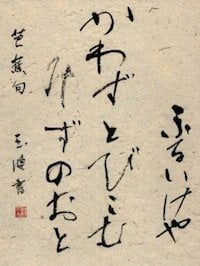 ふるいけや
かわずとびこむ
みずのおと
芭蕉句